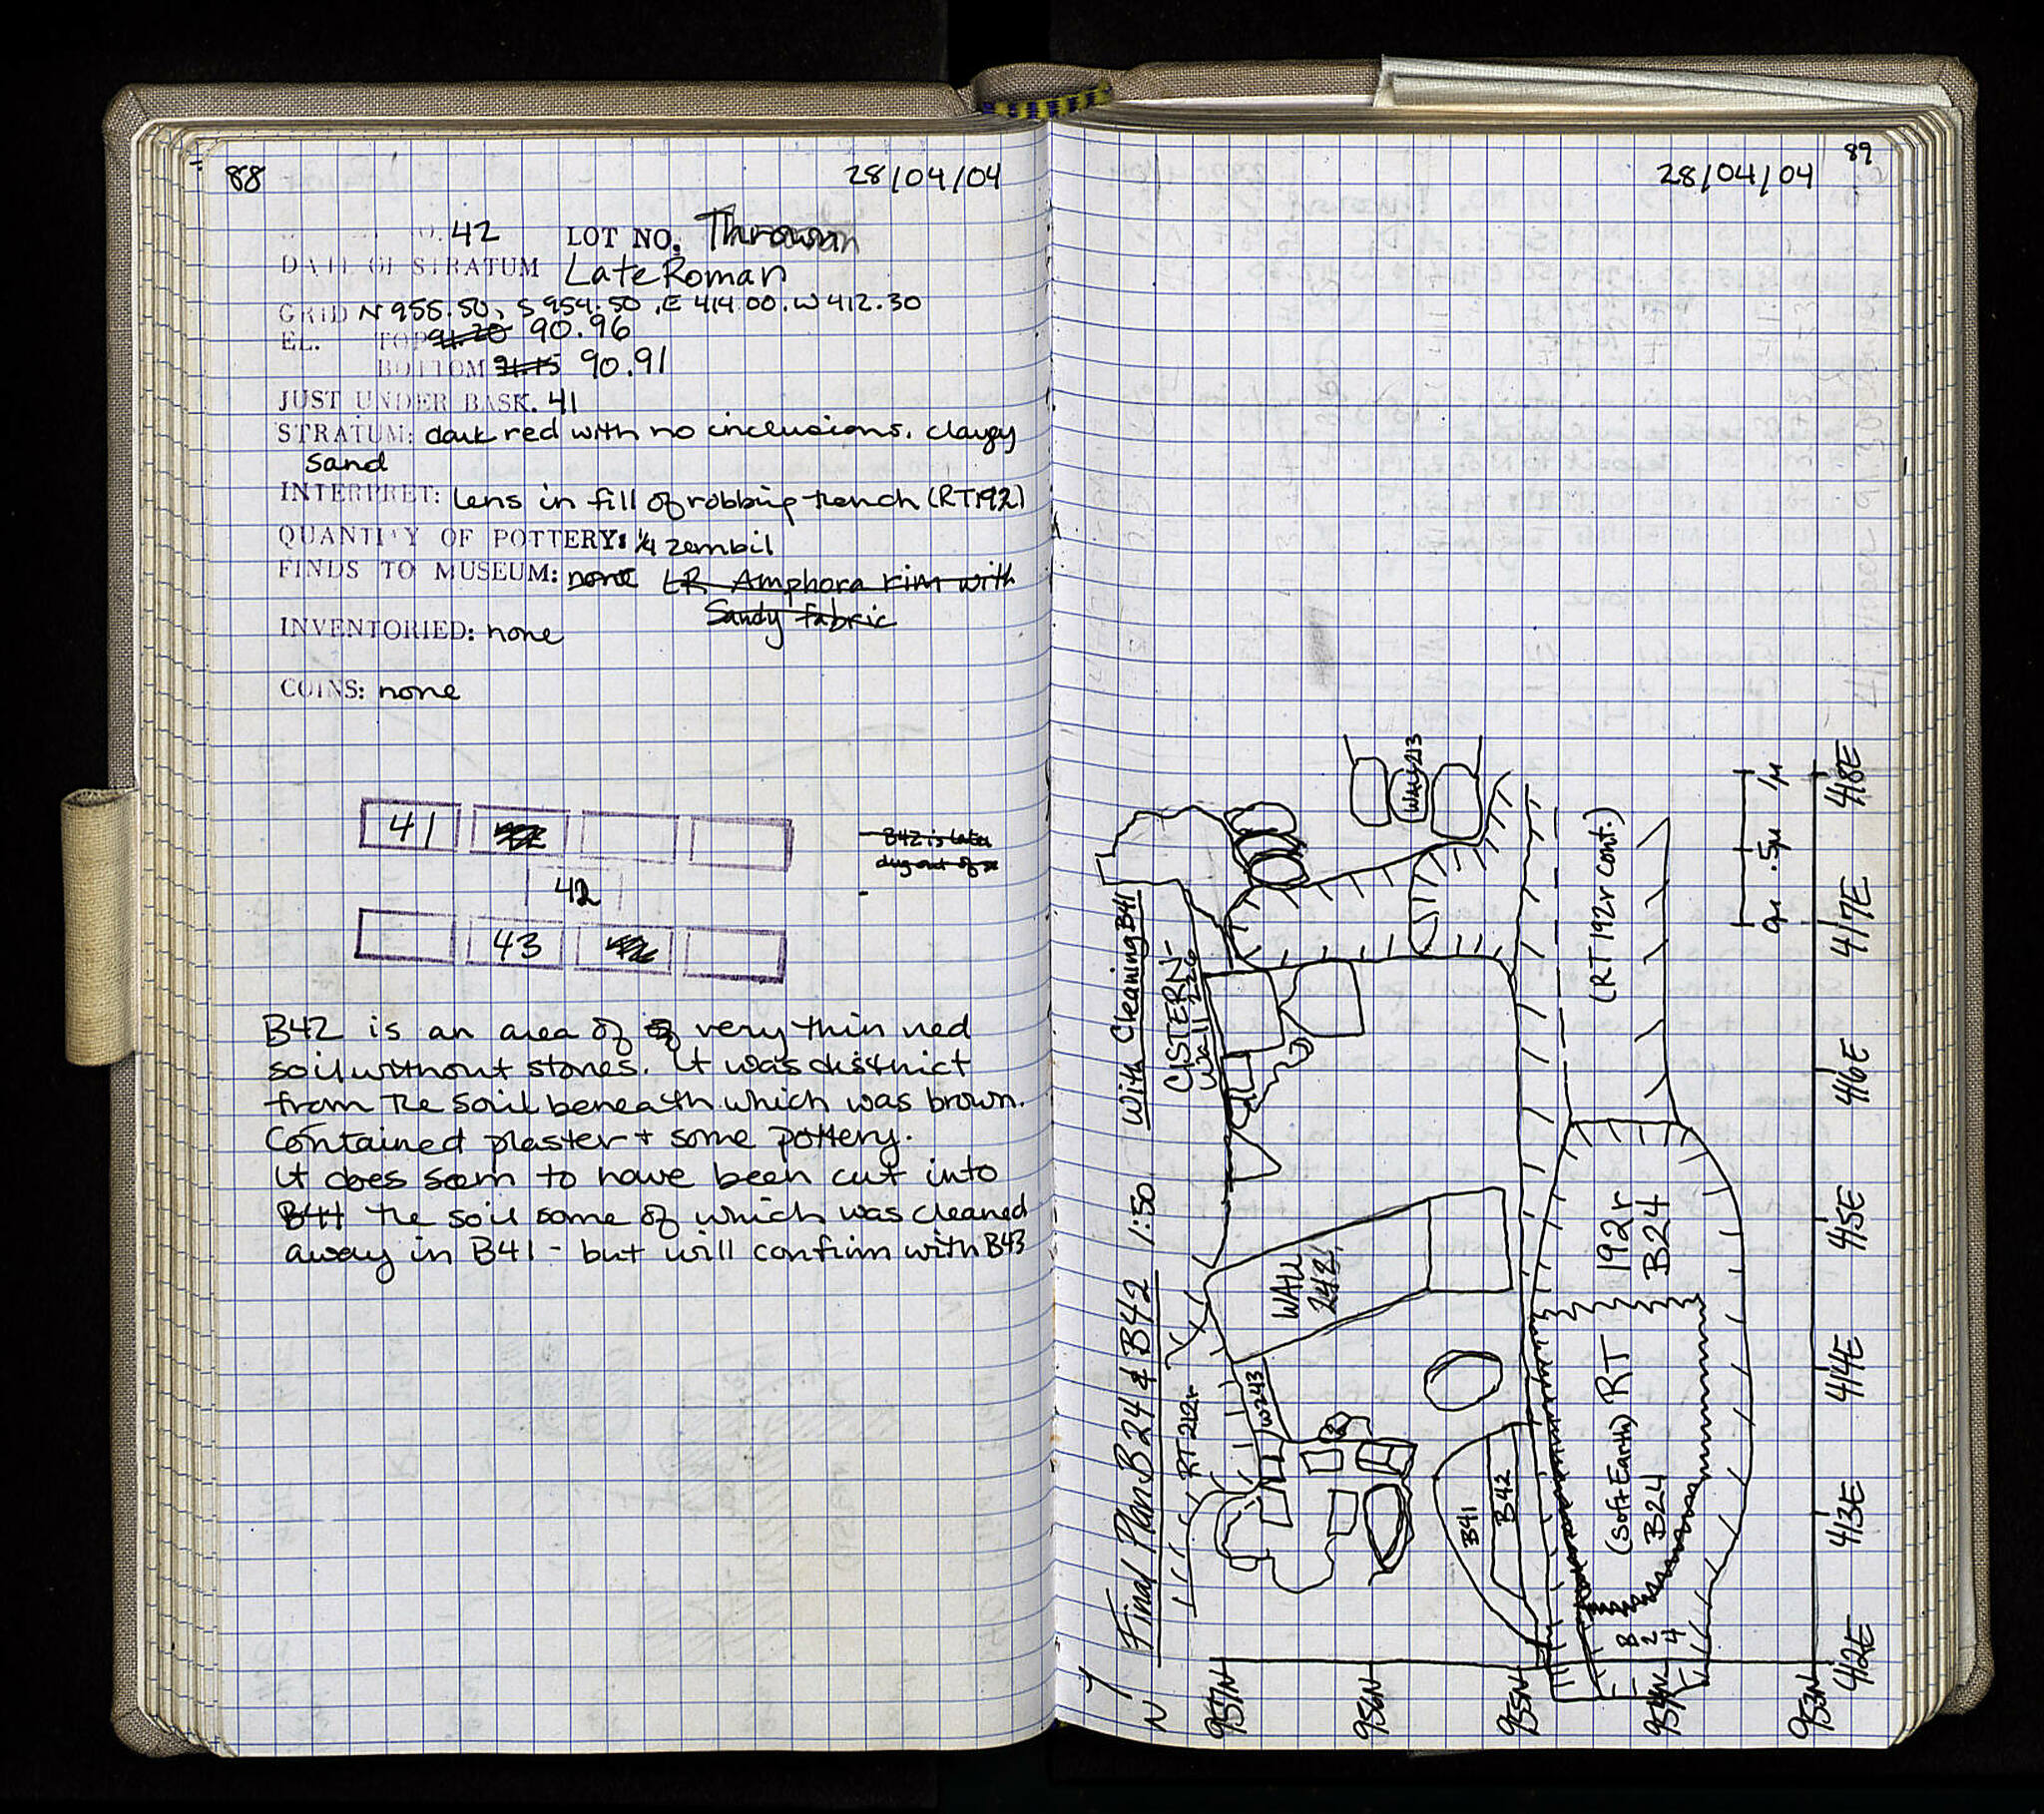 88
28/04/04
42 LOT NO. Thrown
DATE OF STRATUM Late Roman
GRID N 955.50, S 954.50, E 414.00. W 412.30
EL. TOP 91.20 90.96
BOTTOM 91.15 90.91
JUST UNDER BASK. 41
STRATUM: dark red with no inclusions. clayey
sand
INTERPRET: lens in fill of robbing trench (RT192)
QUANTITY OF POTTERY: 1/4 zembil
FINDS TO MUSEUM: none LR Amphora rim with
Sandy fabric
INVENTORIED: none
COINS: none
41
B42 is later
dug out of
42
43
B42 is an area of very thin red
soil without stones. It was distinct
from the soil beneath which was brown.
Contained plaster + some pottery.
It does seem to have been cut into
B41 the soil some of which was cleaned
away in B41 - but will confirm with B43
89
28/04/04
N
Final Plan B24 & B42 1:50 With Cleaning B41
RT 212r
CISTERN
Wall 226
WALL 213
WALL
248
W243
B41
B42
(Soft Earth) RT 192r
B24
B24
B
2
4
(RT 192r cont.)
0M .5M 1M
957N
956N
955N
954N
953N
412E
413E
414E
415E
416E
417E
418E